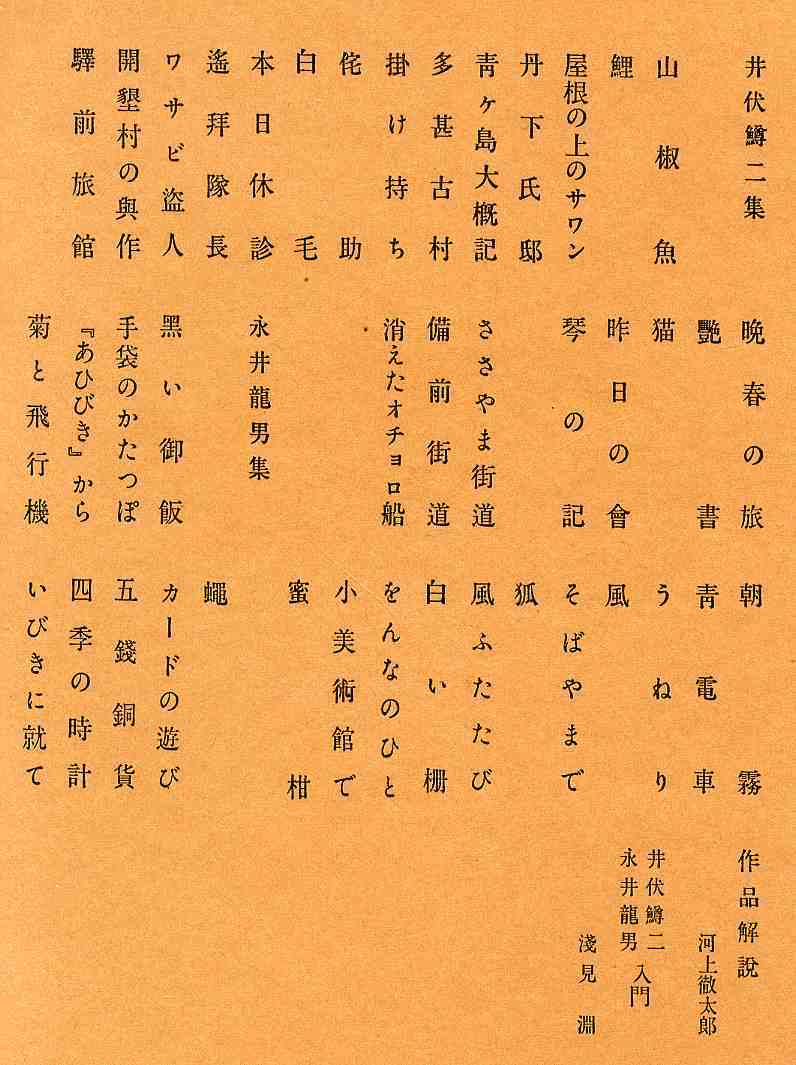 井伏鱒二集
山椒魚
鯉
屋根の上のサワン
丹下氏邸
靑ヶ島大槪記
多甚古村
掛け持ち
侘助
白毛
本日休診
遙拜隊長
ワサビ盜人
開墾村の與作
驛前旅館
晩春の旅
艷書
猫
昨日の會
琴の記
ささやま街道
備前街道
消えたオチョロ船
永井龍男集
黑い御飯
手袋のかたつぽ
『あひびき』から
菊と飛行機
朝霧
靑電車
うねり
風
そばやまで
狐
風ふたたび
白い柵
をんなのひと
小美術館で
蜜柑
蠅
カードの遊び
五錢銅貨
四季の時計
いびきに就て
作品解說
河上徹太郎
井伏鱒二
永井龍男
入門
淺見淵